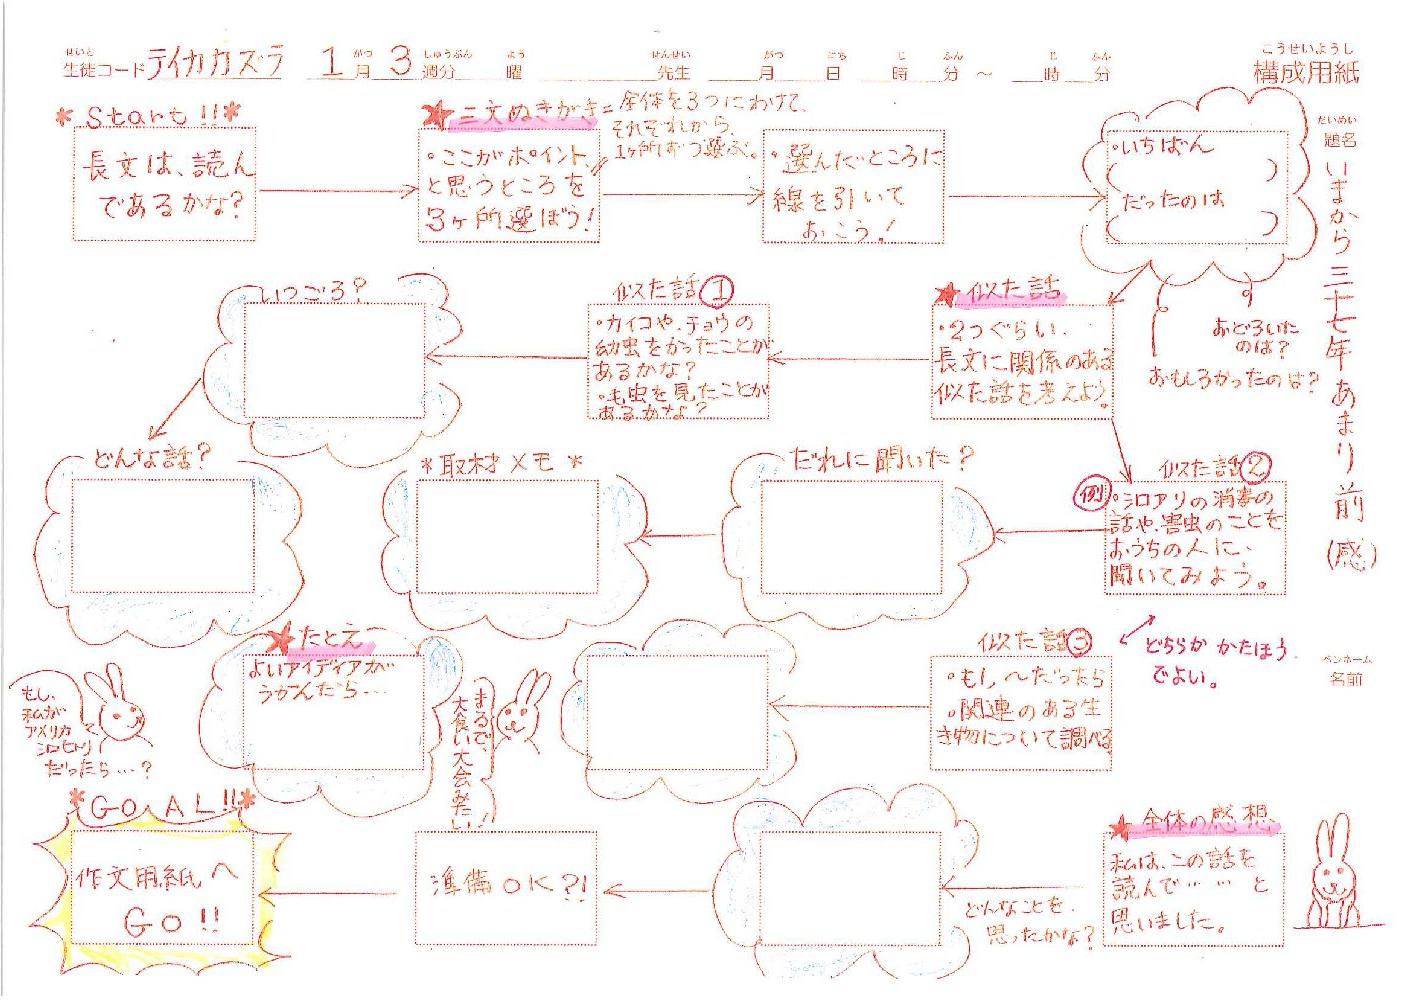 せいと がつ しゅうぶん よう せんせい がつ にち じ ふん じ ふん
生徒コード テイカカズラ 1月 3週分 曜 先生 月 日 時 分 ～ 時 分
こうせいようし
構成用紙
だいめい
題名
いまから三十七年あまり前(感)
* Start!! *
長文は、読ん
であるかな?
★三文ぬきがき=全体を3つにわけて、
それぞれから、
1ヶ所ずつ選ぶ。
・ここがポイント、
と思うところを
3ヶ所選ぼう!
・選んだところに
線を引いて
おこう!
・いちばん
( )
だったのは
( )
おどろいた
のは?
おもしろかったのは?
★似た話
・2つぐらい、
長文に関係のある
似た話を考えよう。
似た話①
・カイコや、チョウの
幼虫をかったことが
あるかな?
・毛虫を見たことが
あるかな?
いつごろ?
どんな話?
*取材メモ*
だれに聞いた?
似た話②
例
・シロアリの消毒の
話や、害虫のことを
おうちの人に、
聞いてみよう。
どちらか かたほう
でよい。
ペンネーム
名前
似た話③
・もし、～だったら
・関連のある生
き物について調べる。
★たとえ
よいアイディアが
うかんだら…
まるで、
大食い大会みたい!
もし、
私が
アメリカ
シロヒトリ
だったら…?
★全体の感想
私は、この話を
読んで……と
思いました。
どんなことを、
思ったかな?
準備OK?!
*GOAL!!*
作文用紙へ
GO!!